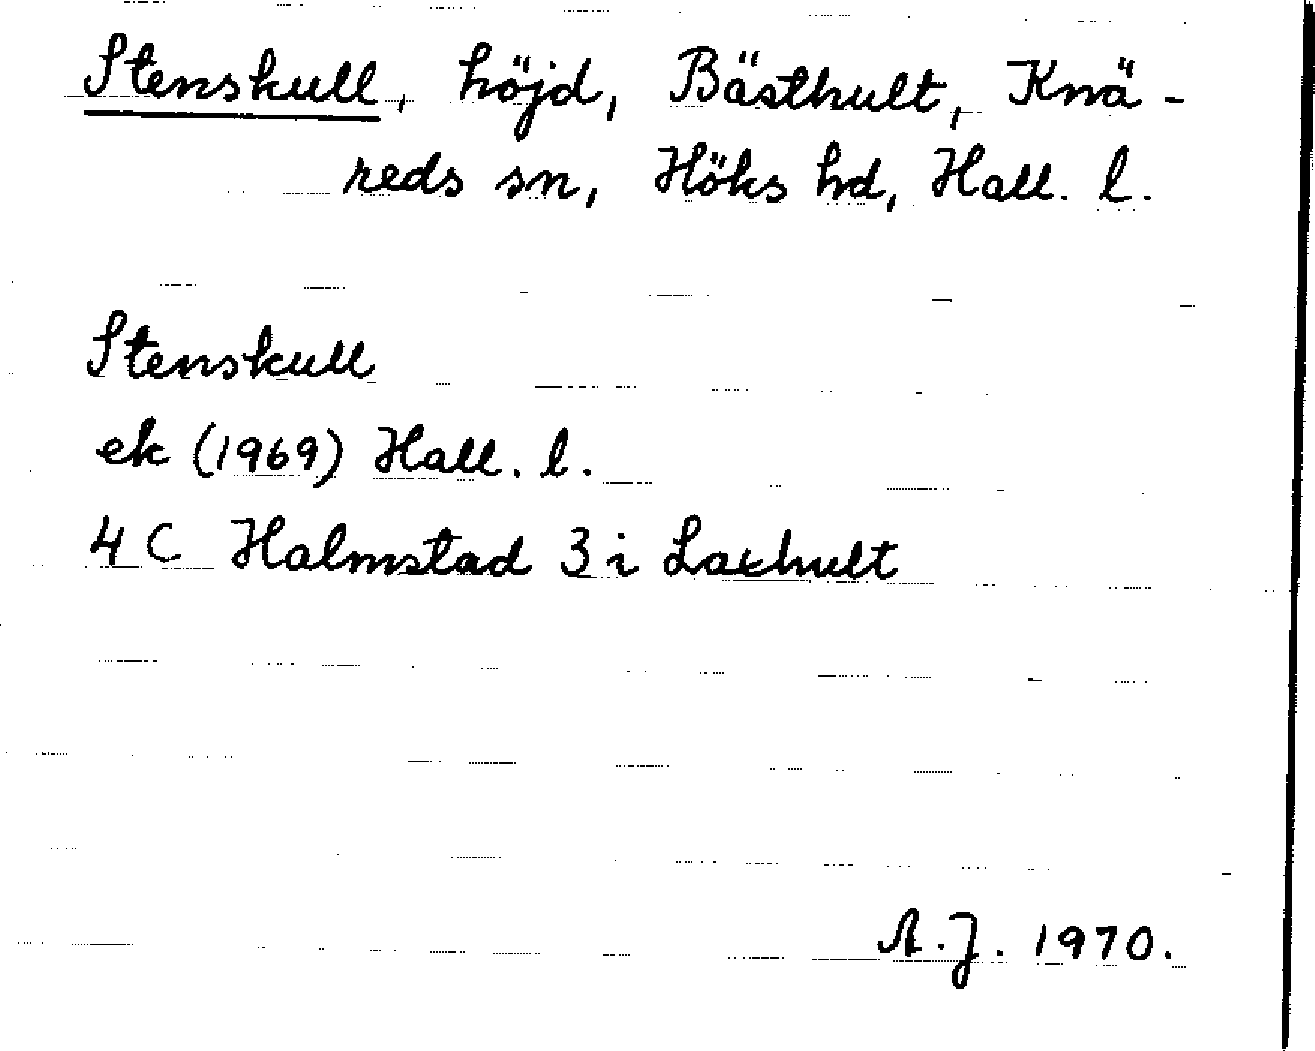 Stenskull, höjd, Bästhult, Knä-
reds sn, Höks hd, Hall. l.
Stenskull
ek (1969) Hall. l.
4 C Halmstad 3 i Laxhult
A.J. 1970.